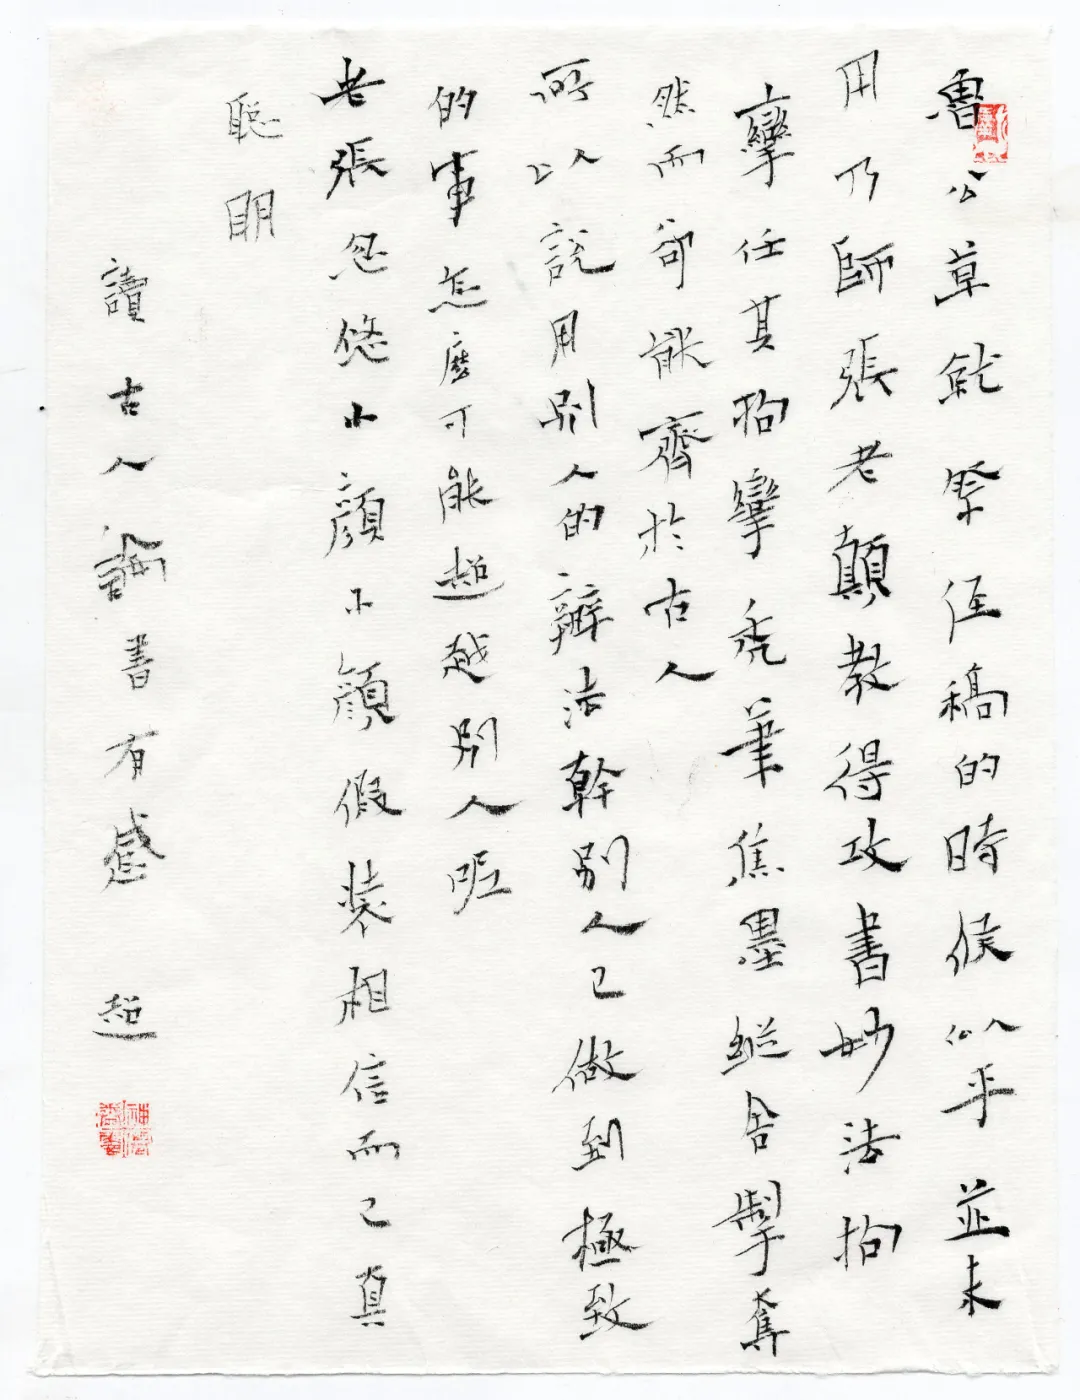 魯公草就祭侄稿的時候似乎並未
用乃師張老顛教得攻書妙法拘
攣任其拘攣禿筆焦墨縱舍掣奪
然而卻能齊於古人
所以說用別人的辦法幹別人已做到極致
的事怎麼可能超越別人呢
老張忽悠小顏小顏假裝相信而已真
聰明
讀古人論書有感 超